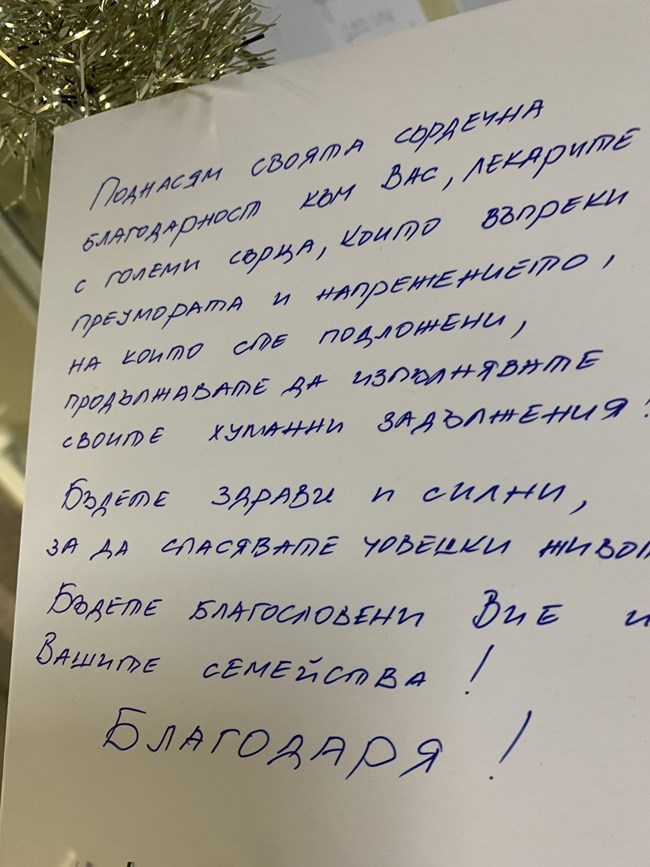 Поднасям своята сърдечна
благодарност към Вас, лекарите
с големи сърца, които въпреки
преумората и напрежението,
на които сте подложени,
продължавате да изпълнявате
своите хуманни задължения!
Бъдете здрави и силни,
за да спасявате човешки живот
Бъдете благословени Вие и
Вашите семейства!
Благодаря!